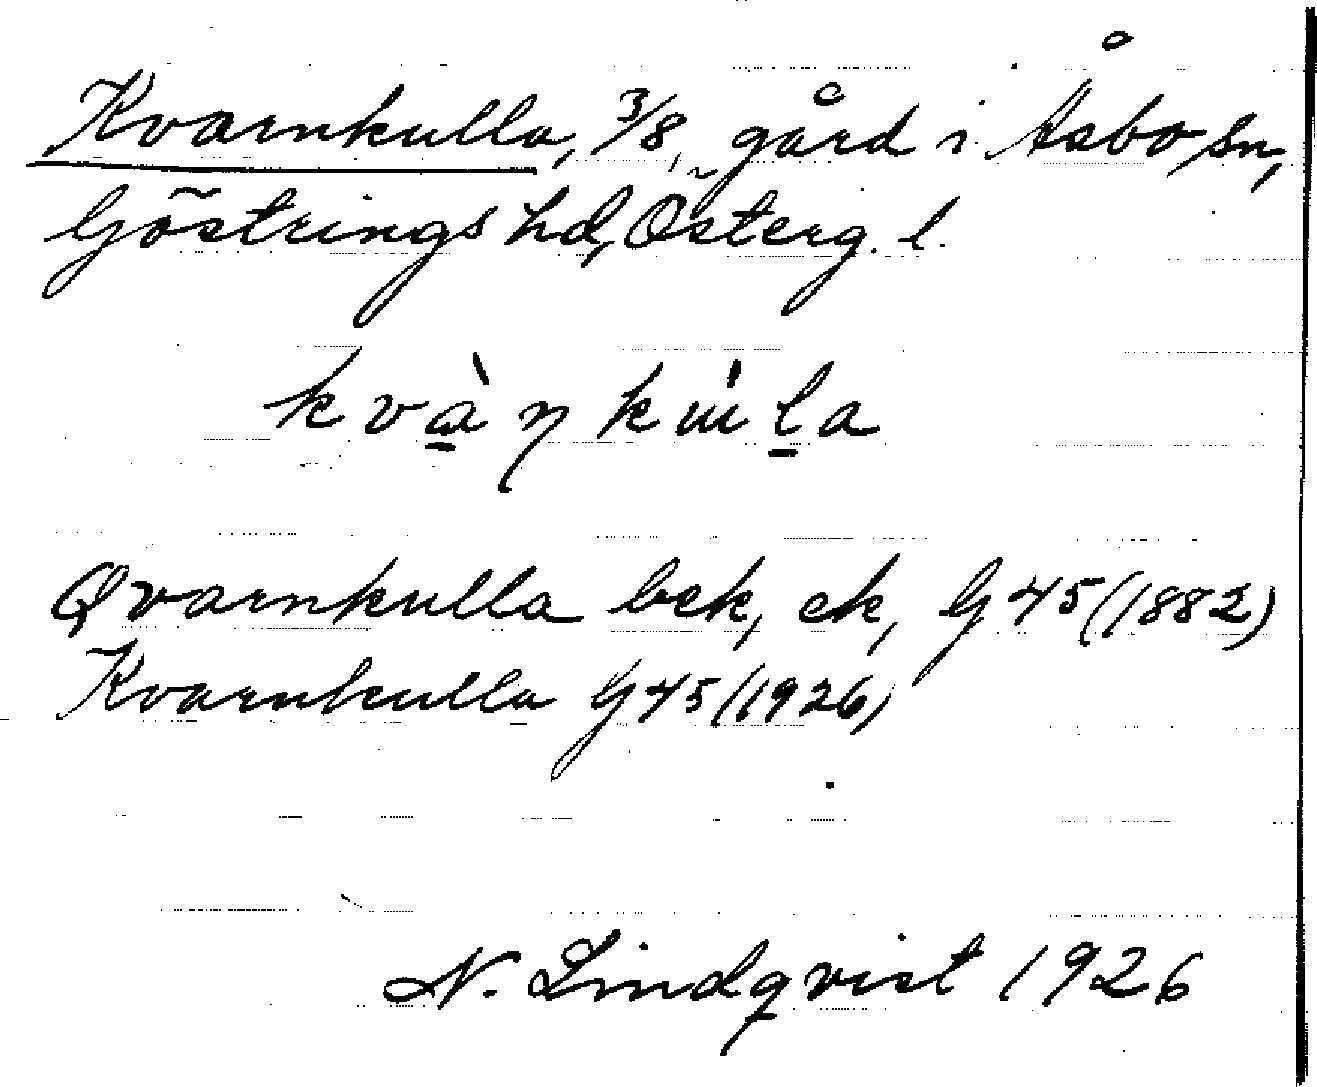 Kvarnkulla, 3/8, gård i Åsbo sn,
Göstrings hd, Österg. l.
kvàŋkúla
Qvarnkulla bek, ek, G 45 (1882)
Kvarnkulla G 45 (1926)
N. Lindqvist 1926